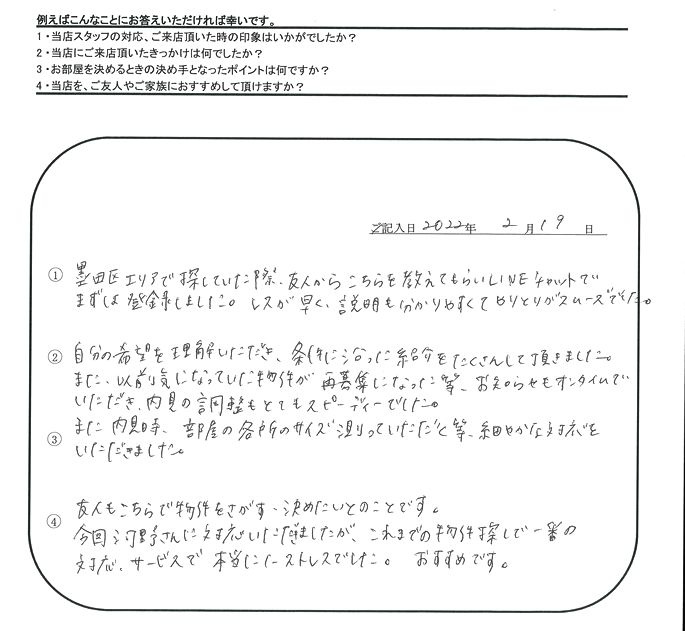 例えばこんなことにお答えいただければ幸いです。
1・当店スタッフの対応、ご来店頂いた時の印象はいかがでしたか？
2・当店にご来店頂いたきっかけは何でしたか？
3・お部屋を決めるときの決め手となったポイントは何ですか？
4・当店を、ご友人やご家族におすすめして頂けますか？
ご記入日 2022年 2月19日
① 墨田区エリアで探していた際、友人からこちらを教えてもらいLINEチャットで
まずは登録しました。レスが早く、説明も分かりやすくてやりとりがスムーズでした。
② 自分の希望を理解いただき、条件に沿った紹介をたくさんして頂きました。
また、以前気になっていた物件が再募集になった等、お知らせもオンタイムで
いただき、内見の調整もとてもスピーディーでした。
③ また内見時、部屋の各所のサイズ測っていただく等、細やかな対応を
いただきました。
友人もこちらで物件をさがす・決めたいとのことです。
④ 今回河野さんに対応いただきましたが、これまでの物件探しで一番の
対応、サービスで本当にノーストレスでした。おすすめです。